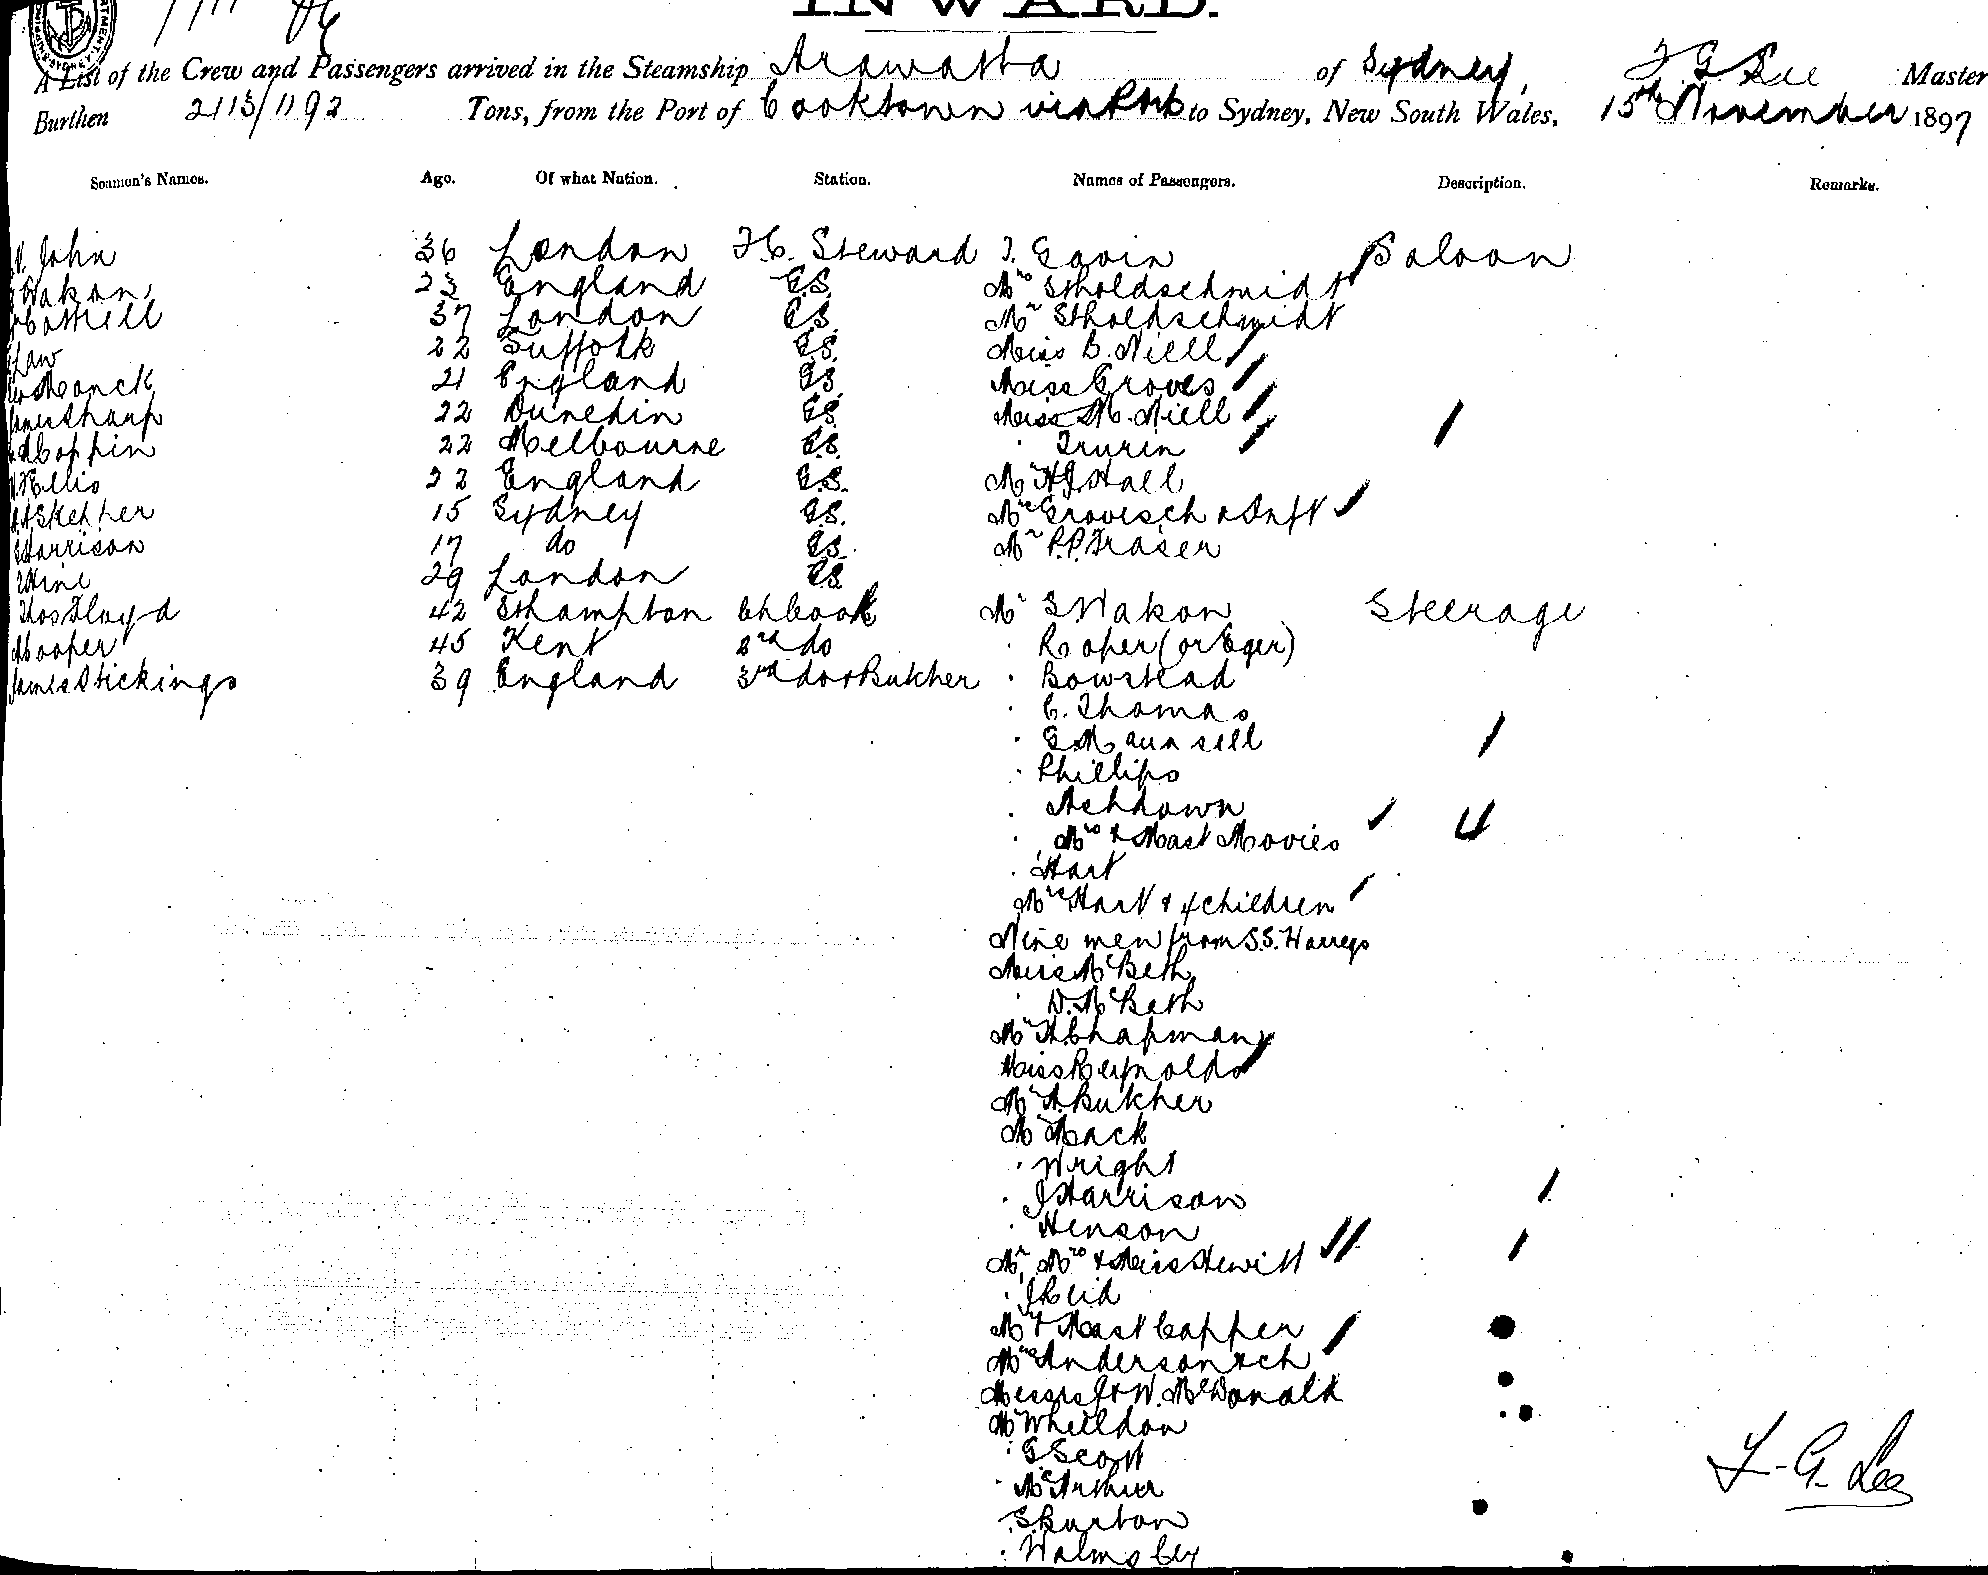 INWARD.
A List of the Crew and Passengers arrived in the Steamship Arawatta of Sydney, F G Lee Master
Burthen 2113/1192 Tons, from the Port of Cooktown via Ports to Sydney, New South Wales, 15th November 1897
Seamen's Names. Age. Of what Nation. Station. Names of Passengers. Description. Remarks.
John 36 London F.C. Steward J. Gavin Saloon
Wakon 23 England G.S. Mrs Stholdschmidt
37 London G.S. Mr Stholdschmidt
Law 22 Suffolk G.S. Miss B. Niell
Monck 21 England G.S. Miss Groves
James Sharp 22 Dunedin G.S. Miss M. Niell
Coppin 22 Melbourne G.S. Trurin
Ellis 22 England G.S. Mr H J Hall
Skepper 15 Sydney G.S. Mrs Groves ch & Inft
Harrison 17 do G.S. Mr P.P. Fraser
Hine 29 London G.S.
Thos Floyd 42 Sthampton Ch Cook Mr S Wakon Steerage
Cooper 45 Kent 2nd do " Roper (or Eger)
James Stickings 39 England 3rd do & Butcher " Bowstead
" C. Thomas
" G Maunsell
" Phillips
" Ashdown
" Mrs & Mast Movies
" Hart
Mrs Hart & 4 children
Nine men from S.S.
Miss McBeth
" D. McBeth
Mr H Chapman
Miss Reynolds
Mr A. Butcher
Mr Mack
" Wright
" J Harrison
" Henson
Mr, Mrs & Miss Hewitt
" J Reid
Mr & Mast Capper
Mrs Anderson & ch
Messrs J & W. McDonald
Mr Wheildon
" G Scott
" McArthur
" S Burton
" Walmsley
F. G. Lee